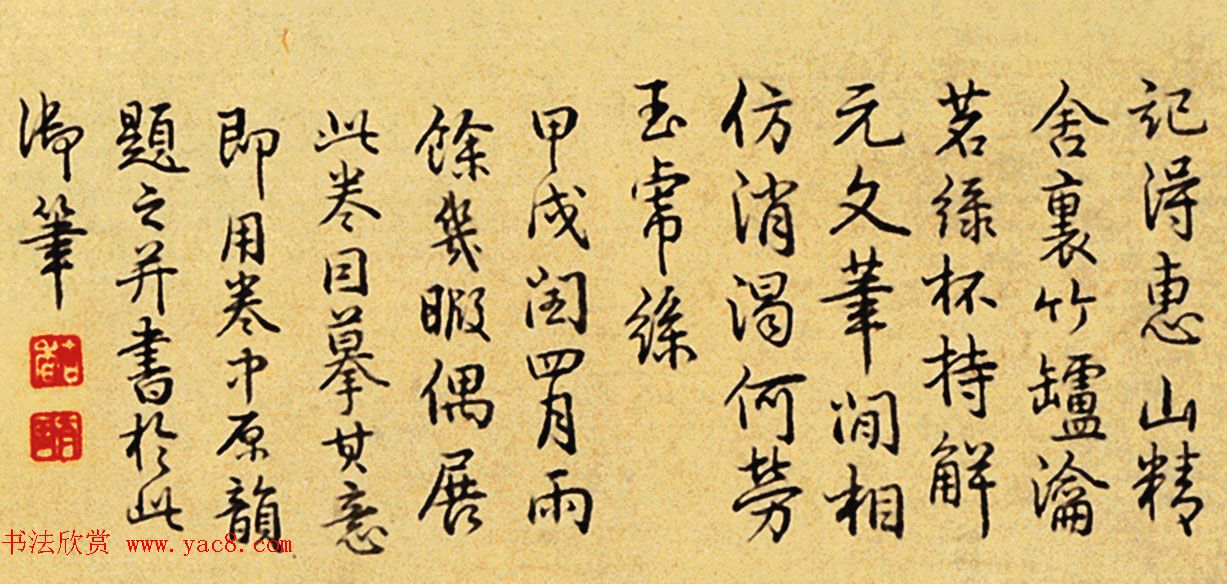 記得惠山精
舍裏竹罏瀹
茗綠杯持解
元文筆閒相
仿消渴何勞
玉虎絲
甲戌閏四月雨
餘幾暇偶展
此卷因摹其意
即用卷中原韻
題之并書於此
御筆
书法欣赏 www.yac8.com